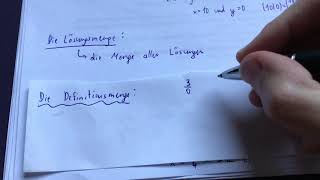 x=10 und y=0
Die Lösungsmenge:
↳ die Menge aller Lösungen
Die Definitionsmenge:
3/0